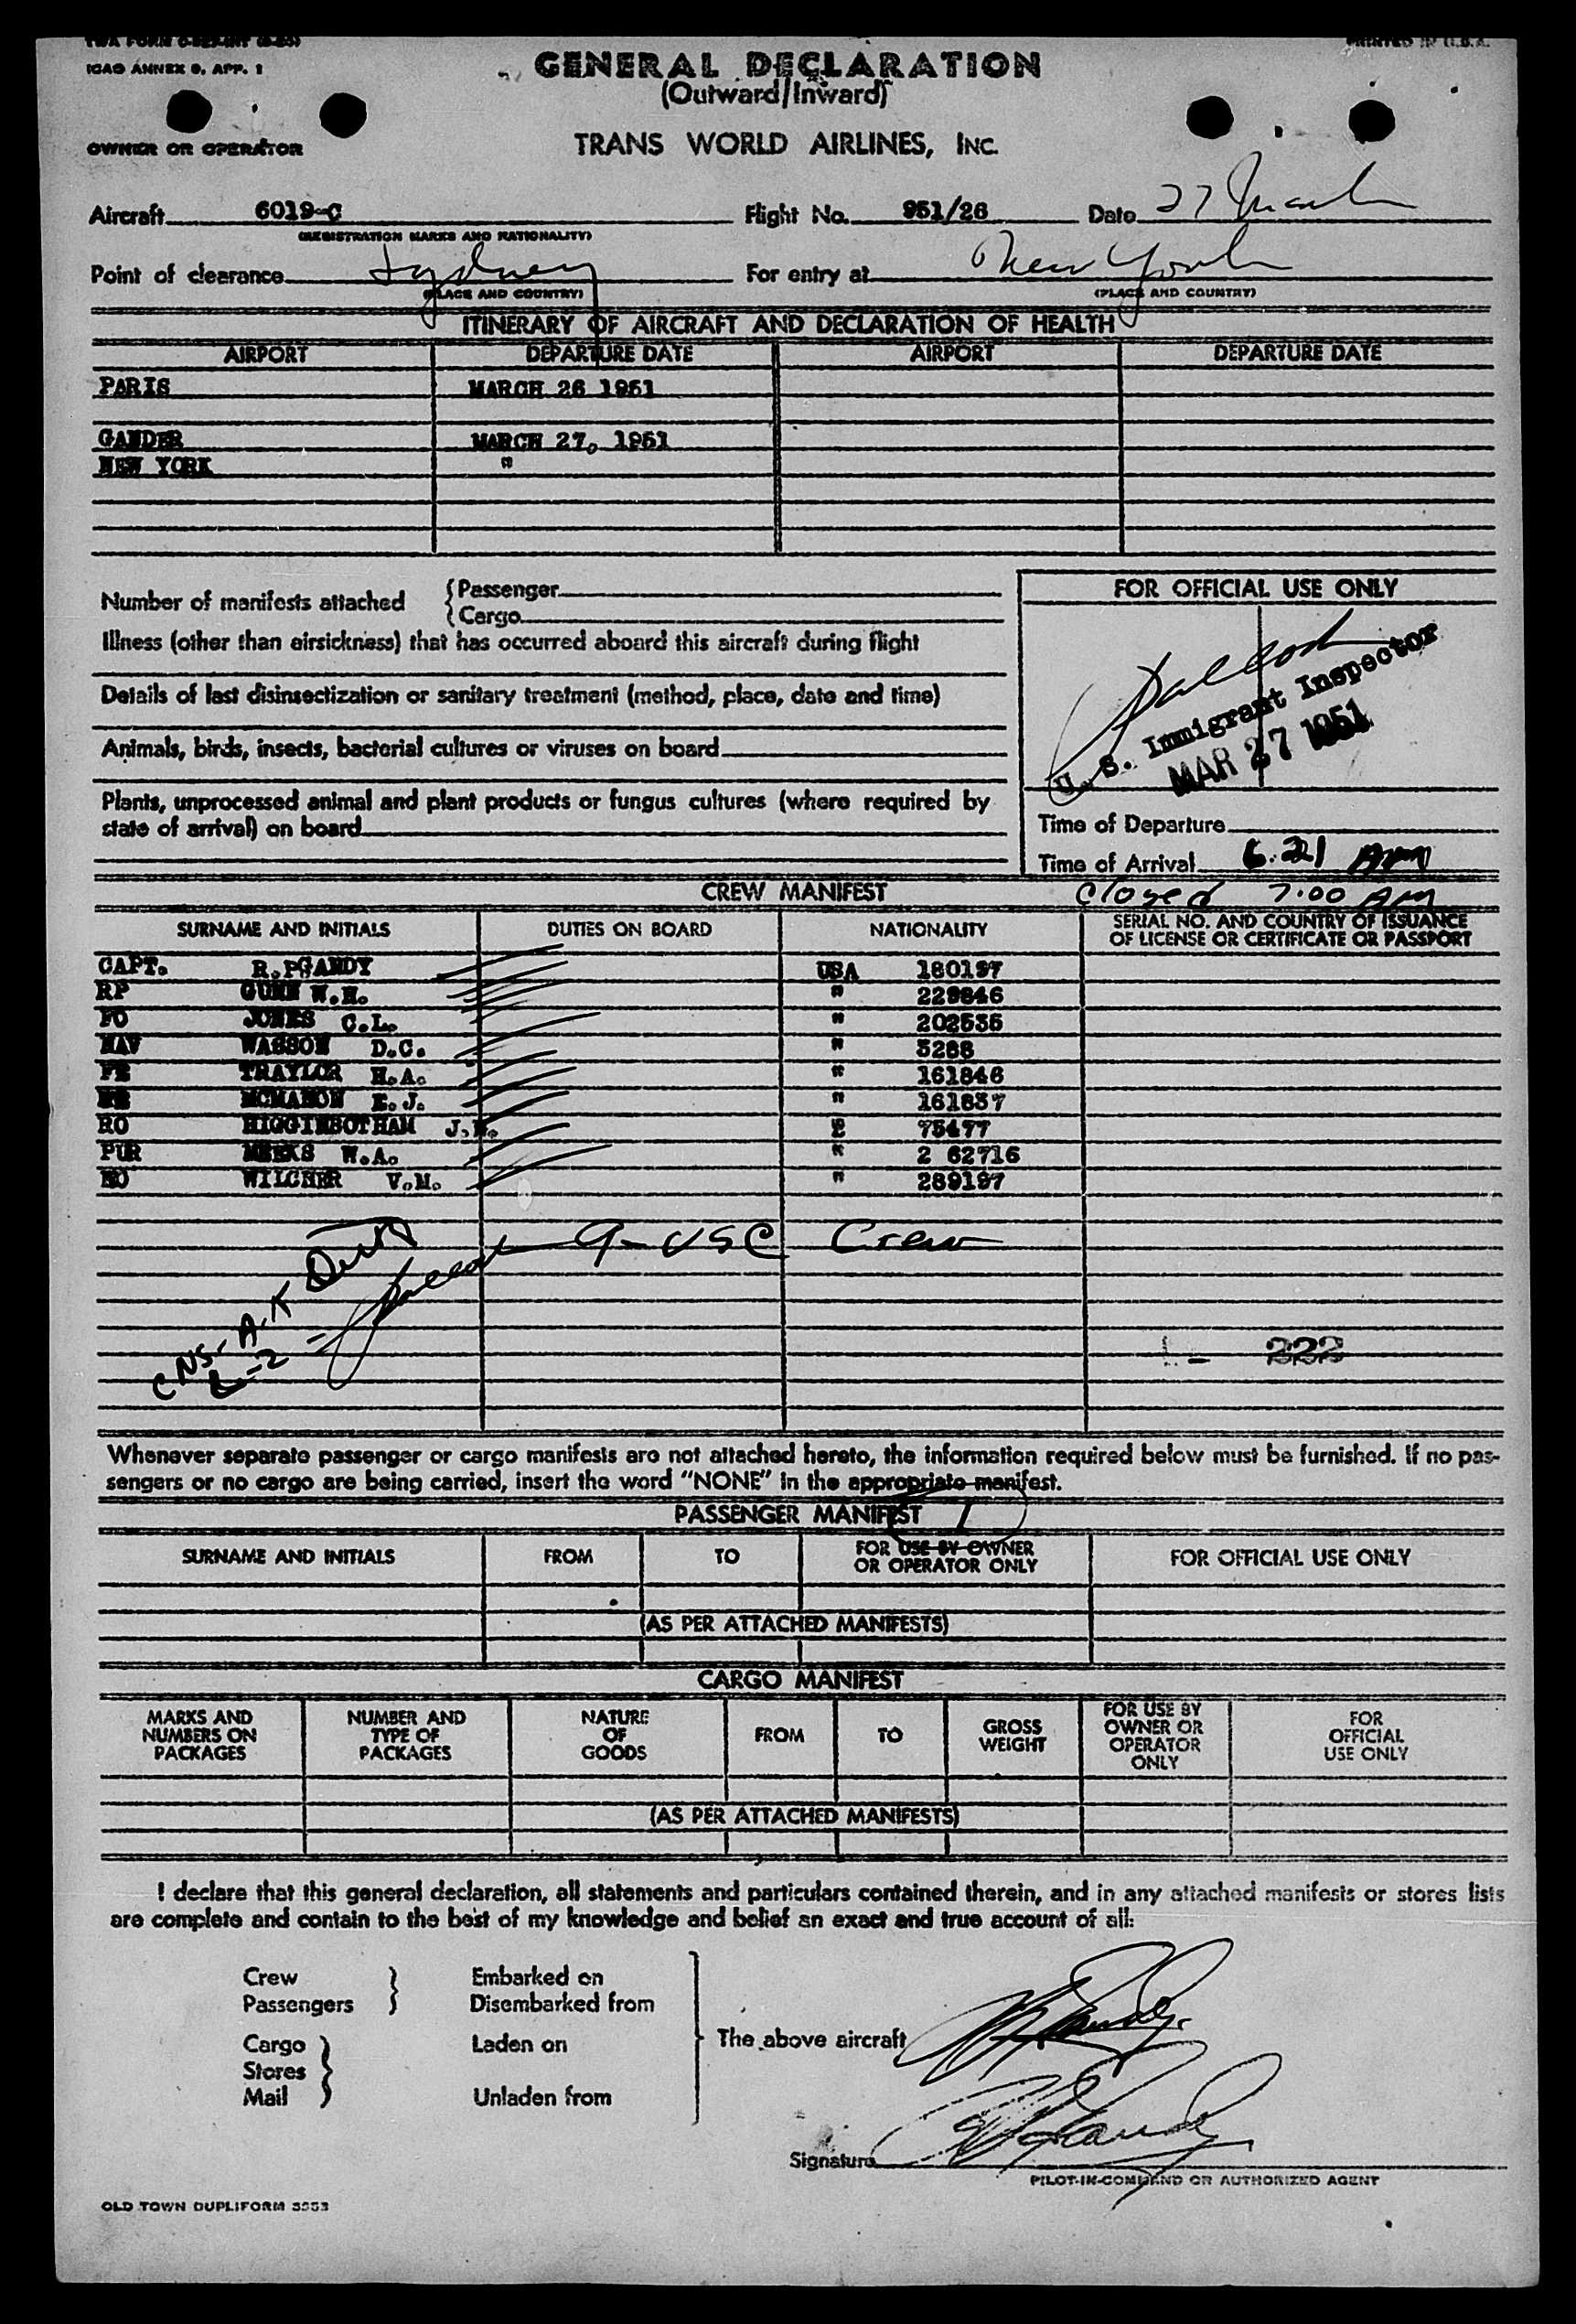 ICAO ANNEX 9, APP. 1
PRINTED IN U.S.A.
GENERAL DECLARATION
(Outward/Inward)
OWNER OR OPERATOR
TRANS WORLD AIRLINES, INC.
Aircraft 6019-C Flight No. 951/26 Date 27 March
(REGISTRATION MARKS AND NATIONALITY)
Point of clearance Sydney For entry at New York
(PLACE AND COUNTRY) (PLACE AND COUNTRY)
ITINERARY OF AIRCRAFT AND DECLARATION OF HEALTH
AIRPORT DEPARTURE DATE AIRPORT DEPARTURE DATE
PARIS MARCH 26 1951
GANDER MARCH 27, 1951
NEW YORK "
Number of manifests attached { Passenger
{ Cargo
Illness (other than airsickness) that has occurred aboard this aircraft during flight
Details of last disinsectization or sanitary treatment (method, place, date and time)
Animals, birds, insects, bacterial cultures or viruses on board
Plants, unprocessed animal and plant products or fungus cultures (where required by
state of arrival) on board
FOR OFFICIAL USE ONLY
U. S. Immigrant Inspector
MAR 27 1951
Time of Departure
Time of Arrival 6.21 AM
Closed 7:00 AM
CREW MANIFEST
SURNAME AND INITIALS DUTIES ON BOARD NATIONALITY SERIAL NO. AND COUNTRY OF ISSUANCE
OF LICENSE OR CERTIFICATE OR PASSPORT
CAPT. R.PGANDY USA 180197
RP GUNN W.H. " 229846
FO JONES C.L. " 202535
NAV WASSON D.C. " 5288
FE TRAYLOR H.A. " 161846
MCMAHON E.J. " 161837
RO HIGGINBOTHAM " 75477
PUR MEEKS W.A. " 2 62716
HO WILCHER V.M. " 289197
9-USC Crew
CNS-A-T
L-2
222
Whenever separate passenger or cargo manifests are not attached hereto, the information required below must be furnished. If no pas-
sengers or no cargo are being carried, insert the word "NONE" in the appropriate manifest.
PASSENGER MANIFEST 1
SURNAME AND INITIALS FROM TO FOR USE BY OWNER
OR OPERATOR ONLY FOR OFFICIAL USE ONLY
(AS PER ATTACHED MANIFESTS)
CARGO MANIFEST
MARKS AND
NUMBERS ON
PACKAGES
NUMBER AND
TYPE OF
PACKAGES
NATURE
OF
GOODS
FROM
TO
GROSS
WEIGHT
FOR USE BY
OWNER OR
OPERATOR
ONLY
FOR
OFFICIAL
USE ONLY
(AS PER ATTACHED MANIFESTS)
I declare that this general declaration, all statements and particulars contained therein, and in any attached manifests or stores lists
are complete and contain to the best of my knowledge and belief an exact and true account of all:
Crew } Embarked on
Passengers } Disembarked from
Cargo } Laden on
Stores
Mail } Unladen from
The above aircraft
Signature
PILOT-IN-COMMAND OR AUTHORIZED AGENT
OLD TOWN DUPLIFORM